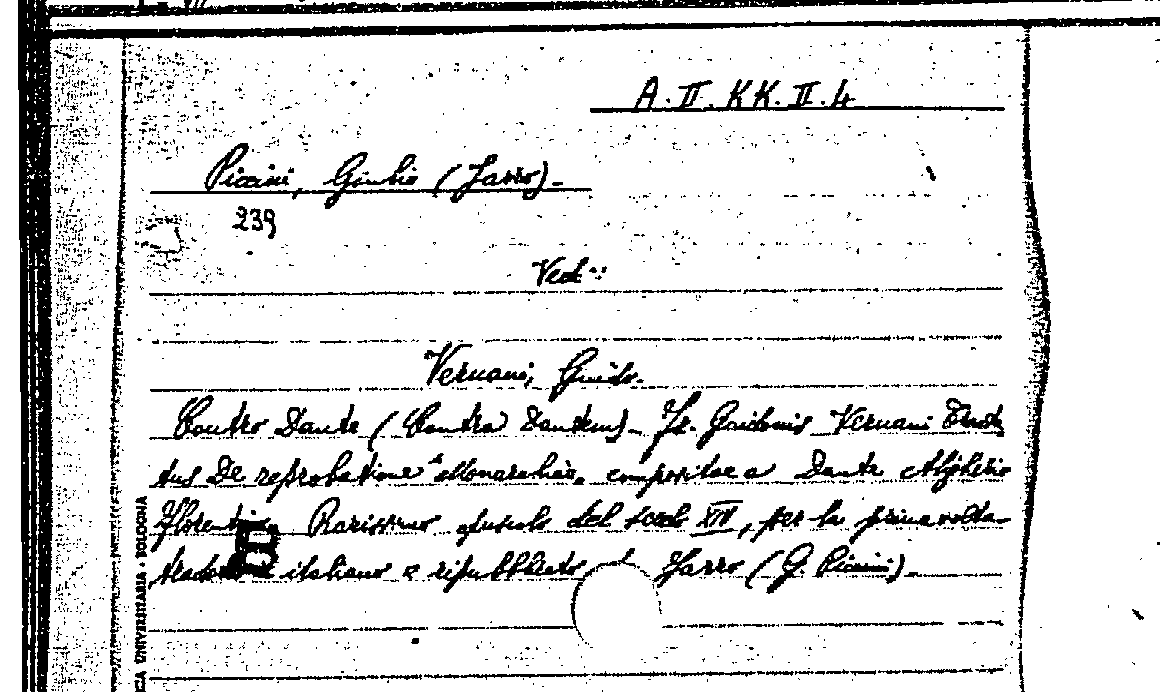 A. II. KK. II. 4
Piccini, Giulio (Jarro).-
239
Ved:
Vernani, Guido.
Contro Dante (Contra Dantem).- Fr. Guidonis Vernani Tracta
tus De reprobatione Monarchiae compositae a Dante Alighero
Florentino. Rarissimo opuscolo del secolo XIV, per la prima volta
tradotto italiano e ripubblicato Jarro (G. Piccini).-
CIA UNIVERSITARIA • BOLOGNA